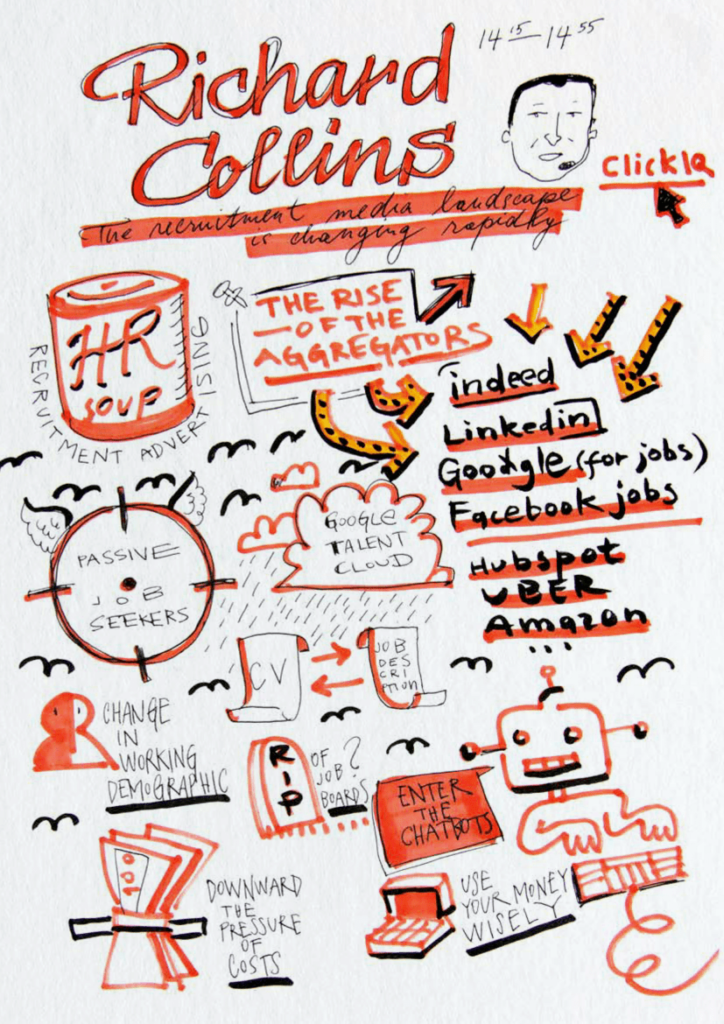 14 15 - 14 55
Richard
Collins
ClickIQ
The recruitment media landscape
is changing rapidly
HR
SOUP
RECRUITMENT ADVERTISING
THE RISE
OF THE
AGGREGATORS
indeed
Linkedin
Google (for jobs)
Facebook jobs
Hubspot
UBER
Amazon
...
PASSIVE
JOB
SEEKERS
GOOGLE
TALENT
CLOUD
CV
JOB
DES
CRI
PTION
CHANGE
IN
WORKING
DEMOGRAPHIC
RIP
OF
JOB
BOARDS?
ENTER
THE
CHATBOTS
100
DOWNWARD
THE
PRESSURE
OF
COSTS
USE
YOUR MONEY
WISELY